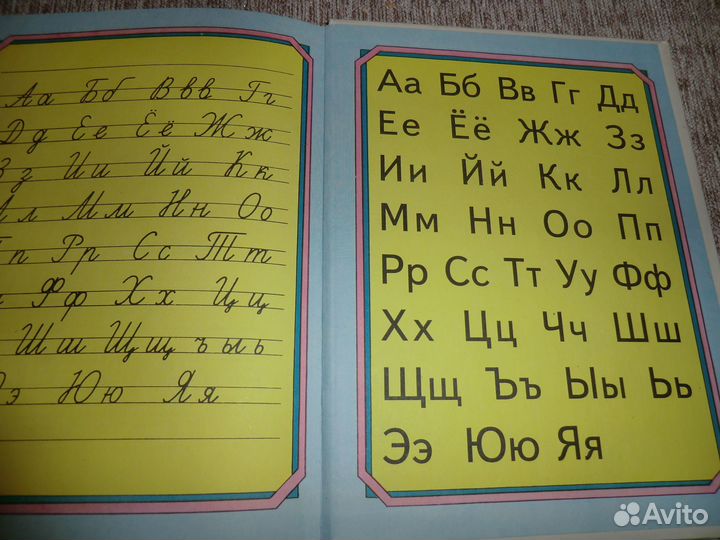 Аа Бб Ввв Гг
Дд Ее Ёё Жж
Зз Ии Йй Кк
Лл Мм Нн Оо
п Рр Сс Тт
Фф Хх Цц
Шш Щщ ъ ы ь
Ээ Юю Яя
Аа Бб Вв Гг Дд
Ее Ёё Жж Зз
Ии Йй Кк Лл
Мм Нн Оо Пп
Рр Сс Тт Уу Фф
Хх Цц Чч Шш
Щщ Ъъ Ыы Ьь
Ээ Юю Яя
Avito